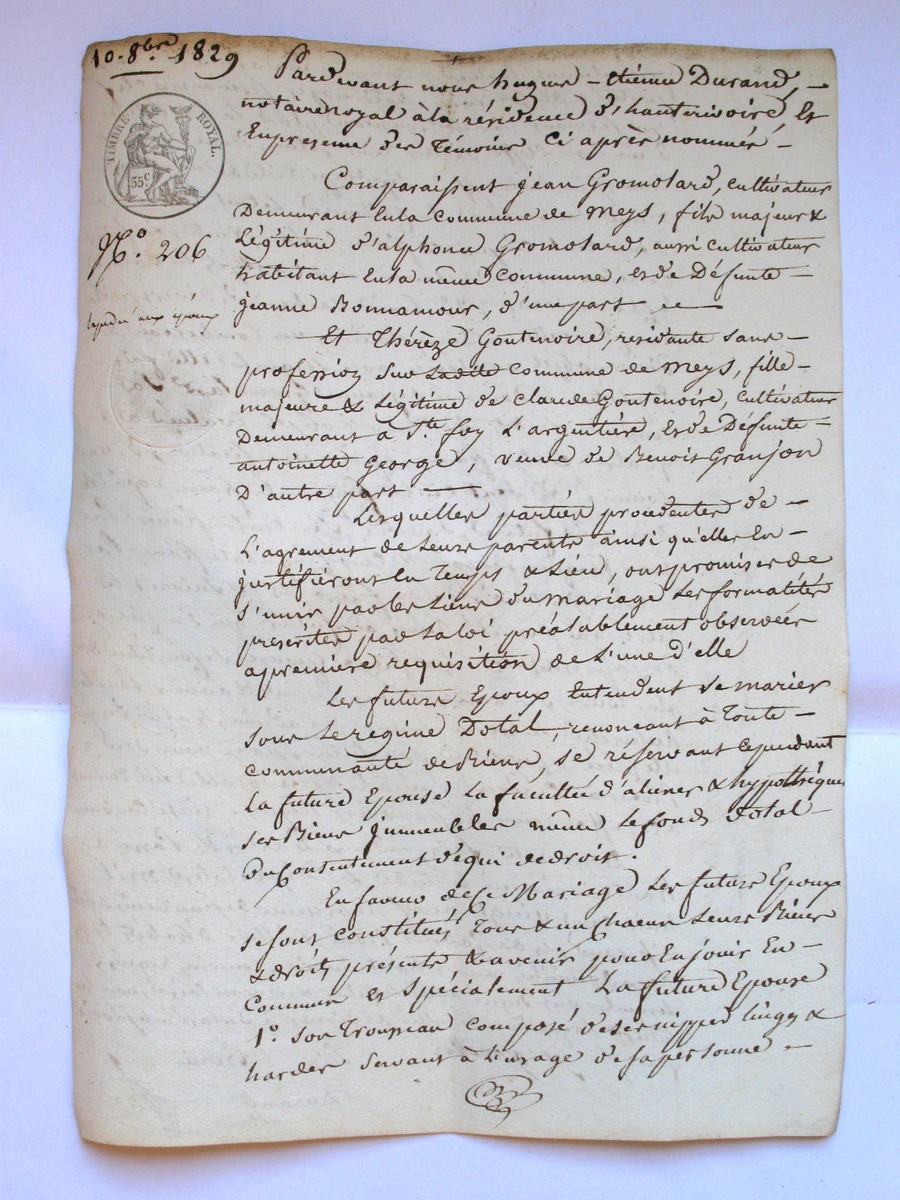 10. 8bre 1829
TIMBRE ROYAL.
35c
No. 206
Expédié aux époux
Pardevant nous hugues - étienne Durand, -
notaire royal à la résidence d'hauterivoire, Et
En presense des Témoins Ci après nommés -
Comparaissent jean Gromolard, cultivateur
Demeurant En la Commune de Meys, fils majeur &
Légitime d'alphonse Gromolard, aussi cultivateur
habitant En la même Commune, et de Défunte -
jeanne Bonnamour, d'une part
Et Thérèze Goutenoire, residante sans -
profession sur Ladite Commune de Meys, fille -
majeure & Légitime de Claude Goutenoire, Cultivateur
Demeurant à Ste foy L'argentière, et de Défunte -
antoinette George, veuve de Benoit Granjon
D'autre part
Lesquelles parties procedentes de -
L'agrement de Leurs parents ainsi qu'elles En -
justifieront En Temps & Lieu, ont promises de
s'unir par les Liens du mariage Les formalités
prescrites par La Loi préalablement observées
a premiere requisition de L'une d'elle
Les futurs Epoux Entendent se marier
sous Le regime Dotal, renoncant à Toute -
communauté de Biens, se réservant Cependant
La future Epouse La facultée d'aliener & hypothéquer
ses Biens jmmeubles même Le fonds dotal -
Du Consentement de qui de droit.
En faveur de Ce Mariage Les futurs Epoux
se sont constitués Tous & un Chacun Leurs Biens
& droits présents & avenir pour En jouir En -
Commun et spécialement La future Epouse
1o. son Trousseau composé de ses nippes linges &
hardes servant à L'usage de sa personne -